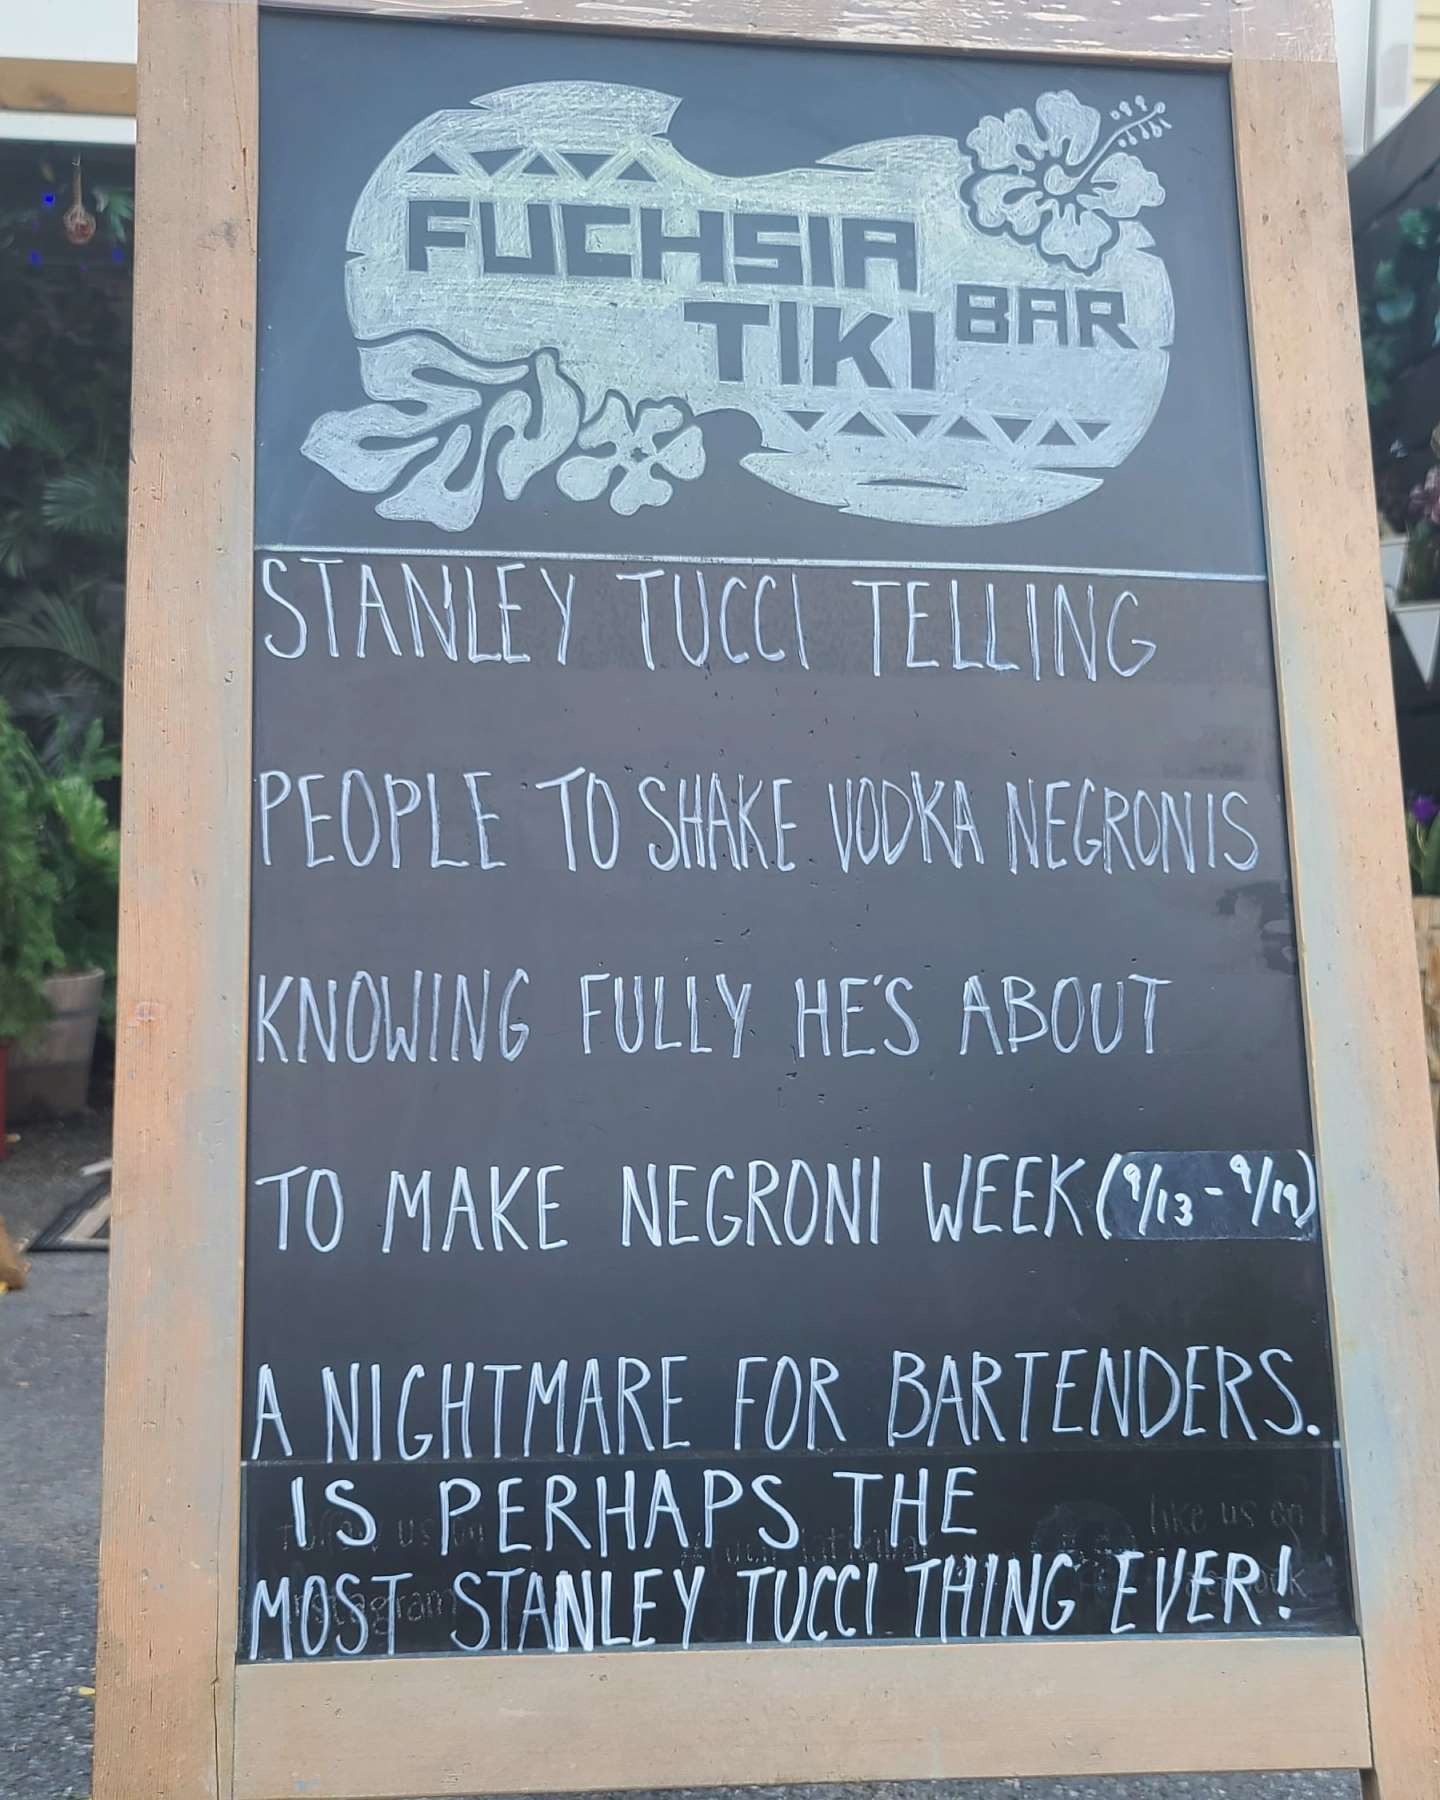 FUCHSIA
TIKI BAR
STANLEY TUCCI TELLING
PEOPLE TO SHAKE VODKA NEGRONIS
KNOWING FULLY HE'S ABOUT
TO MAKE NEGRONI WEEK (9/13 - 9/19)
A NIGHTMARE FOR BARTENDERS.
IS PERHAPS THE
MOST STANLEY TUCCI THING EVER!
like us on
Instagram